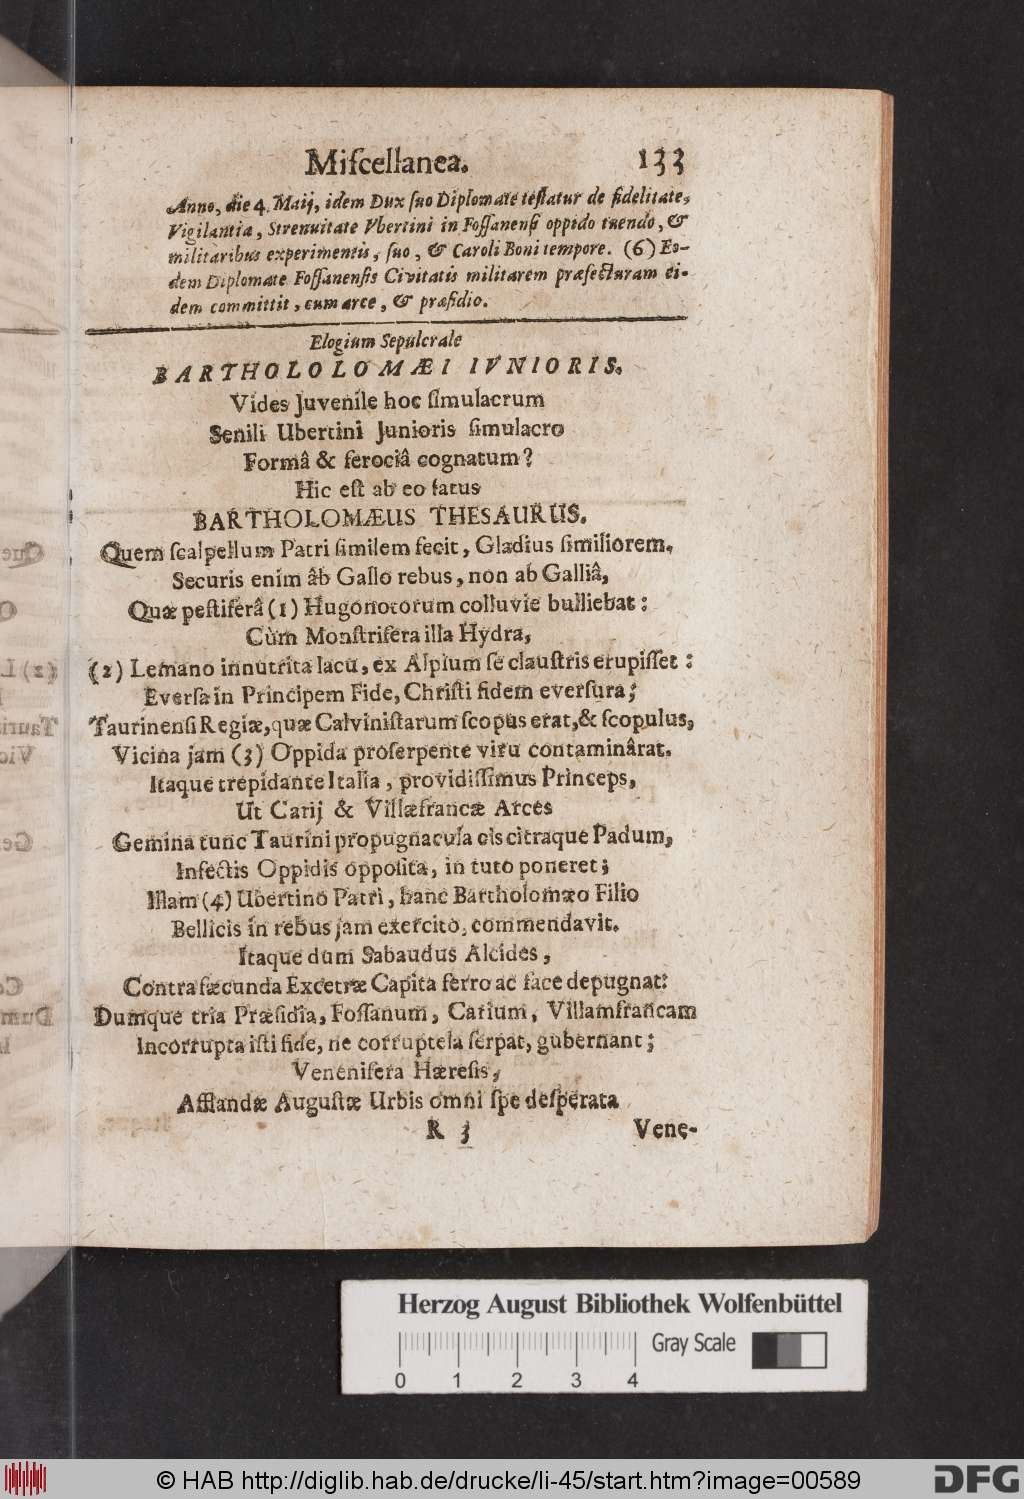 Miſcellanea. 133
Anno, die 4. Maij, idem Dux ſuo Diplomate teſtatur de fidelitate,
Vigilantia, Strenuitate Vbertini in Foſſanenſi oppido tuendo, &
militaribus experimentis, ſuo, & Caroli Boni tempore. (6) Eo-
dem Diplomate Foſſanenſis Civitatis militarem præfecturam ei-
dem committit, cum arce, & præſidio.
Elogium Sepulcrale
BARTHOLOLOMÆI IVNIORIS.
Vides Juvenile hoc ſimulacrum
Senili Ubertini Junioris ſimulacro
Formâ & ferociâ cognatum?
Hic eſt ab eo ſatus
BARTHOLOMÆUS THESAURUS.
Quem ſcalpellum Patri ſimilem fecit, Gladius ſimiliorem.
Securis enim âb Gallo rebus, non ab Galliâ,
Quæ peſtiferâ (1) Hugonotorum colluvie bulliebat:
Cùm Monſtrifera illa Hydra,
(2) Lemano innutrita lacu, ex Alpium ſe clauſtris erupiſſet:
Everſa in Principem Fide, Chriſti fidem everſura;
Taurinenſi Regiæ, quæ Calviniſtarum scopus erat, & ſcopulus,
Vicina jam (3) Oppida proſerpente viru contaminârat.
Itaque trepidante Italia, providiſſimus Princeps,
Ut Carij & Villæfrancæ Arces
Gemina tunc Taurini propugnacula cis citraque Padum,
Infectis Oppidis oppoſita, in tuto poneret;
Illam (4) Ubertino Patri, hanc Bartholomæo Filio
Bellicis in rebus jam exercito, commendavit.
Itaque dum Sabaudus Alcides,
Contra fæcunda Excetræ Capita ferro ac face depugnat:
Dumque tria Præſidia, Foſſanum, Carium, Villamfrancam
Incorrupta iſti fide, ne corruptela ſerpat, gubernant;
Venenifera Hæreſis,
Afflandæ Auguſtæ Urbis omni ſpe deſperata
R 3 Vene-
Herzog August Bibliothek Wolfenbüttel
Gray Scale
0 1 2 3 4
© HAB http://diglib.hab.de/drucke/li-45/start.htm?image=00589
DFG